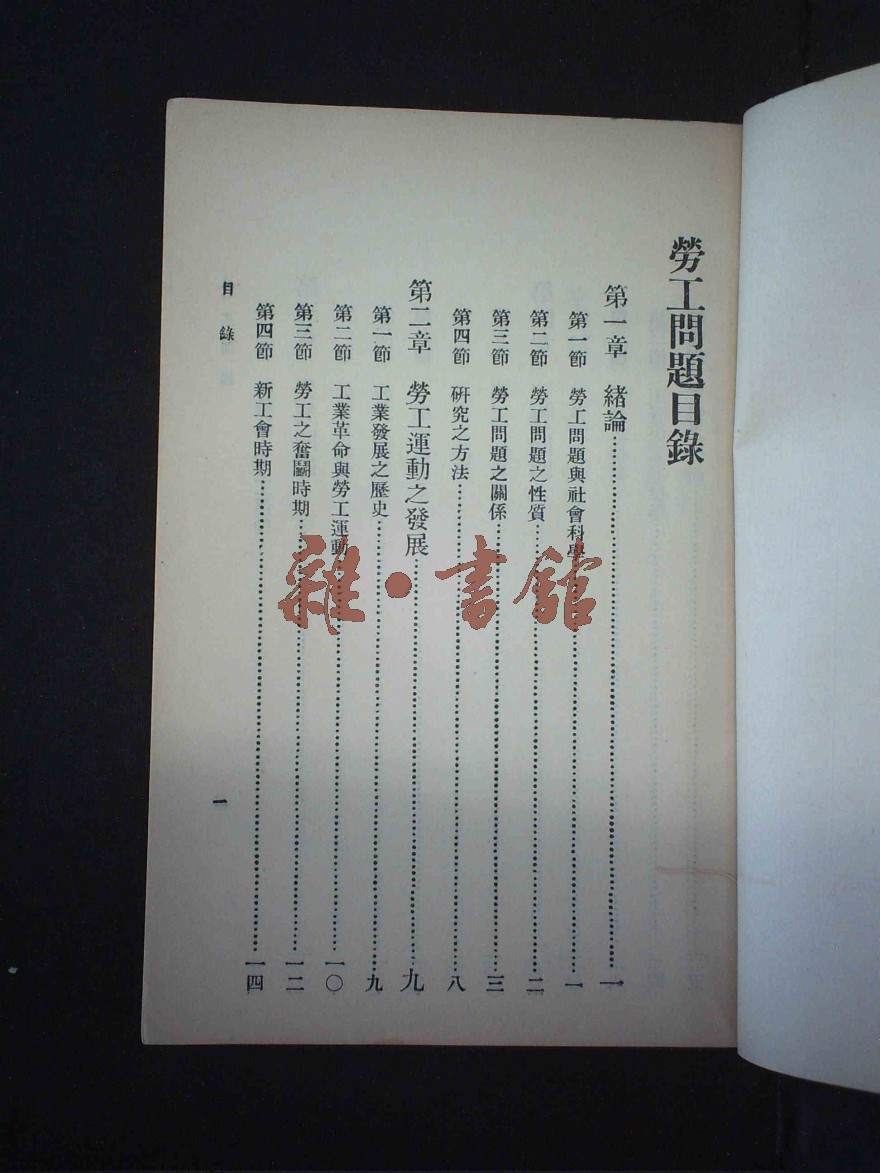 勞工問題目錄
第一章 緒論……一
第一節 勞工問題與社會科學……一
第二節 勞工問題之性質……二
第三節 勞工問題之關係……三
第四節 硏究之方法……八
第二章 勞工運動之發展……九
第一節 工業發展之歷史……九
第二節 工業革命與勞工運動……一〇
第三節 勞工之奮鬭時期……一二
第四節 新工會時期……一四
目錄
一
雜·書館